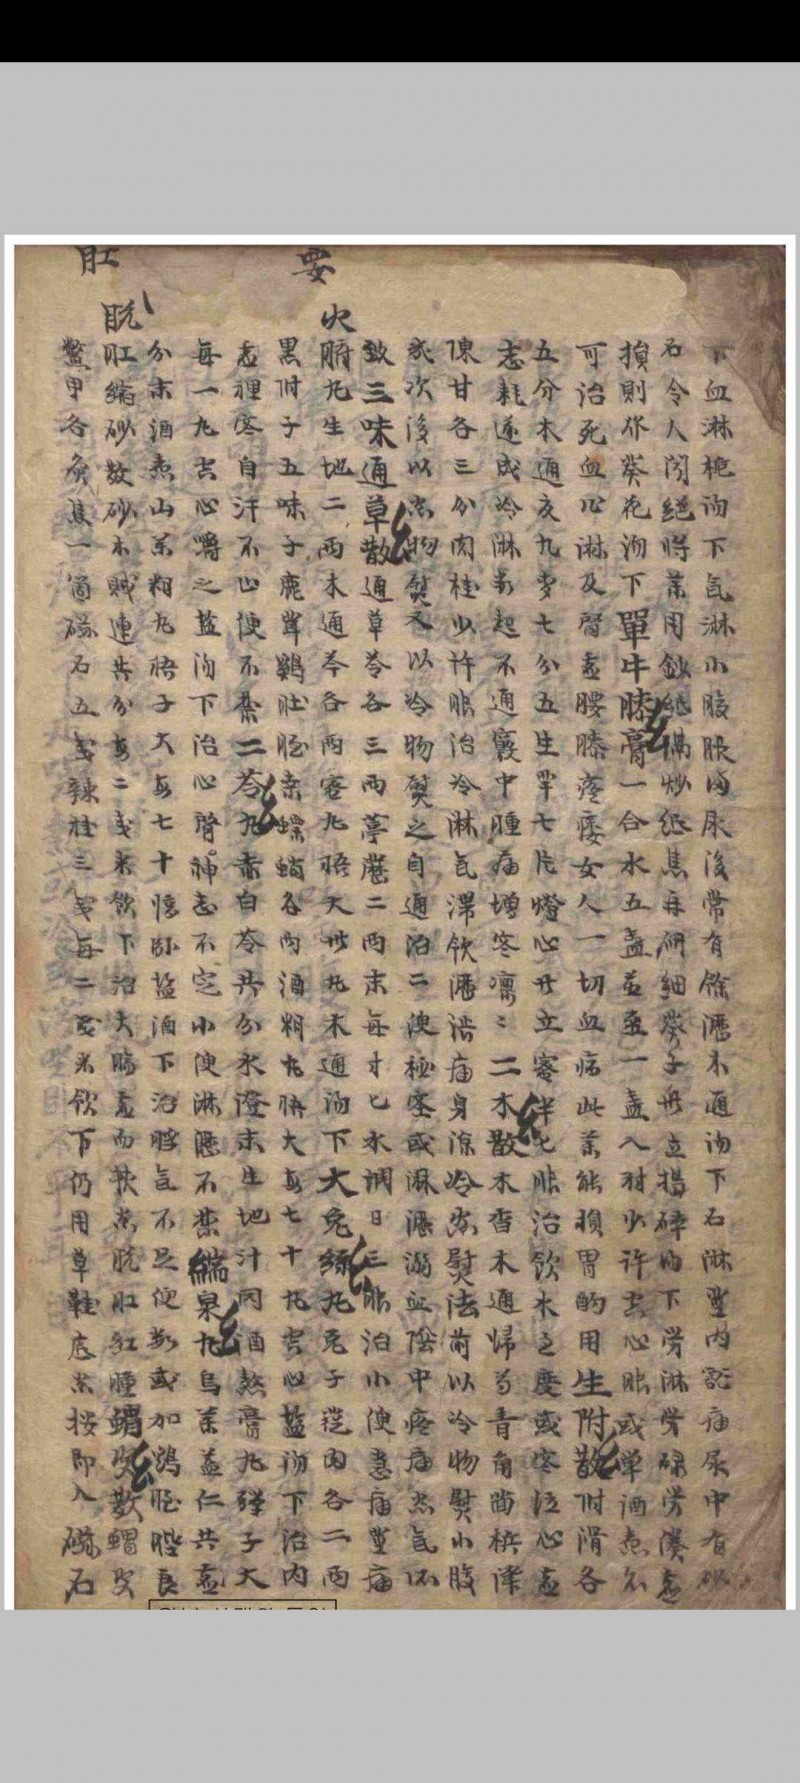 下血淋梔湯下气淋小腹脹滿尿後常有餘瀝木通湯下石淋莖內割痛尿中有砂
石令人悶絕將藥用鈔紙隔炒紙焦再研細葵子卅立搗碎湯下勞淋勞碌勞湊虛
損則作葵花湯下單牛膝膏一合水五盞煎至一盞入射少許空心服或單酒煎亦
可治死血心淋及腎虛腰膝疼痿女人一切血病此藥能損胃酌用生附散附滑各
五分木通友九半七分五生半七片燈心廿立蜜絆七服治飲水之度或寒泣心虛
志耗遂成冷淋數起不通竅中腫痛增寒凜凜二木散木香木通歸芍青角茴梹澤
陳甘各三分肉桂少許服治冷淋气滯飲瀝澁痛身涼冷熱熨法前以冷物熨小腹
幾次後以熱物熨又以冷物熨之自通治二便極塞或淋瀝溺澁陰中疼痛熱气所
致三味通草散通草苓各三兩葶藶二兩末每寸匕水調日三服治小便急痛莖痛
火腑丸生地二兩木通芩各兩蜜丸梧大卅丸木通湯下大兔絲丸兔子從肉各二兩
黑附子五味子鹿茸鷄肚胵桑螵蛸各兩酒糊丸梧大每七十丸空心鹽湯下治內
虛裡寒自汗不止便不禁二苓丸赤白苓共分水澄末生地汁同酒熬膏丸弹子大
每一丸空心嚼之鹽湯下治心腎神志不定小便淋瀝不禁縮泉丸烏藥益仁共
分末酒煮山藥糊丸梧子大每七十臨臥鹽酒下治脬气不足便數或加鷄胵脞
脫肛縮砂散砂木賊連共分每二戔米飲下治大腸虛而挾熱脫肛紅腫蝟皮散蝟皮
鱉甲各炙焦一箇磁石五戔辣桂三戔每二戔米飲下仍用草鞋底炙按即入磁石
要
肛